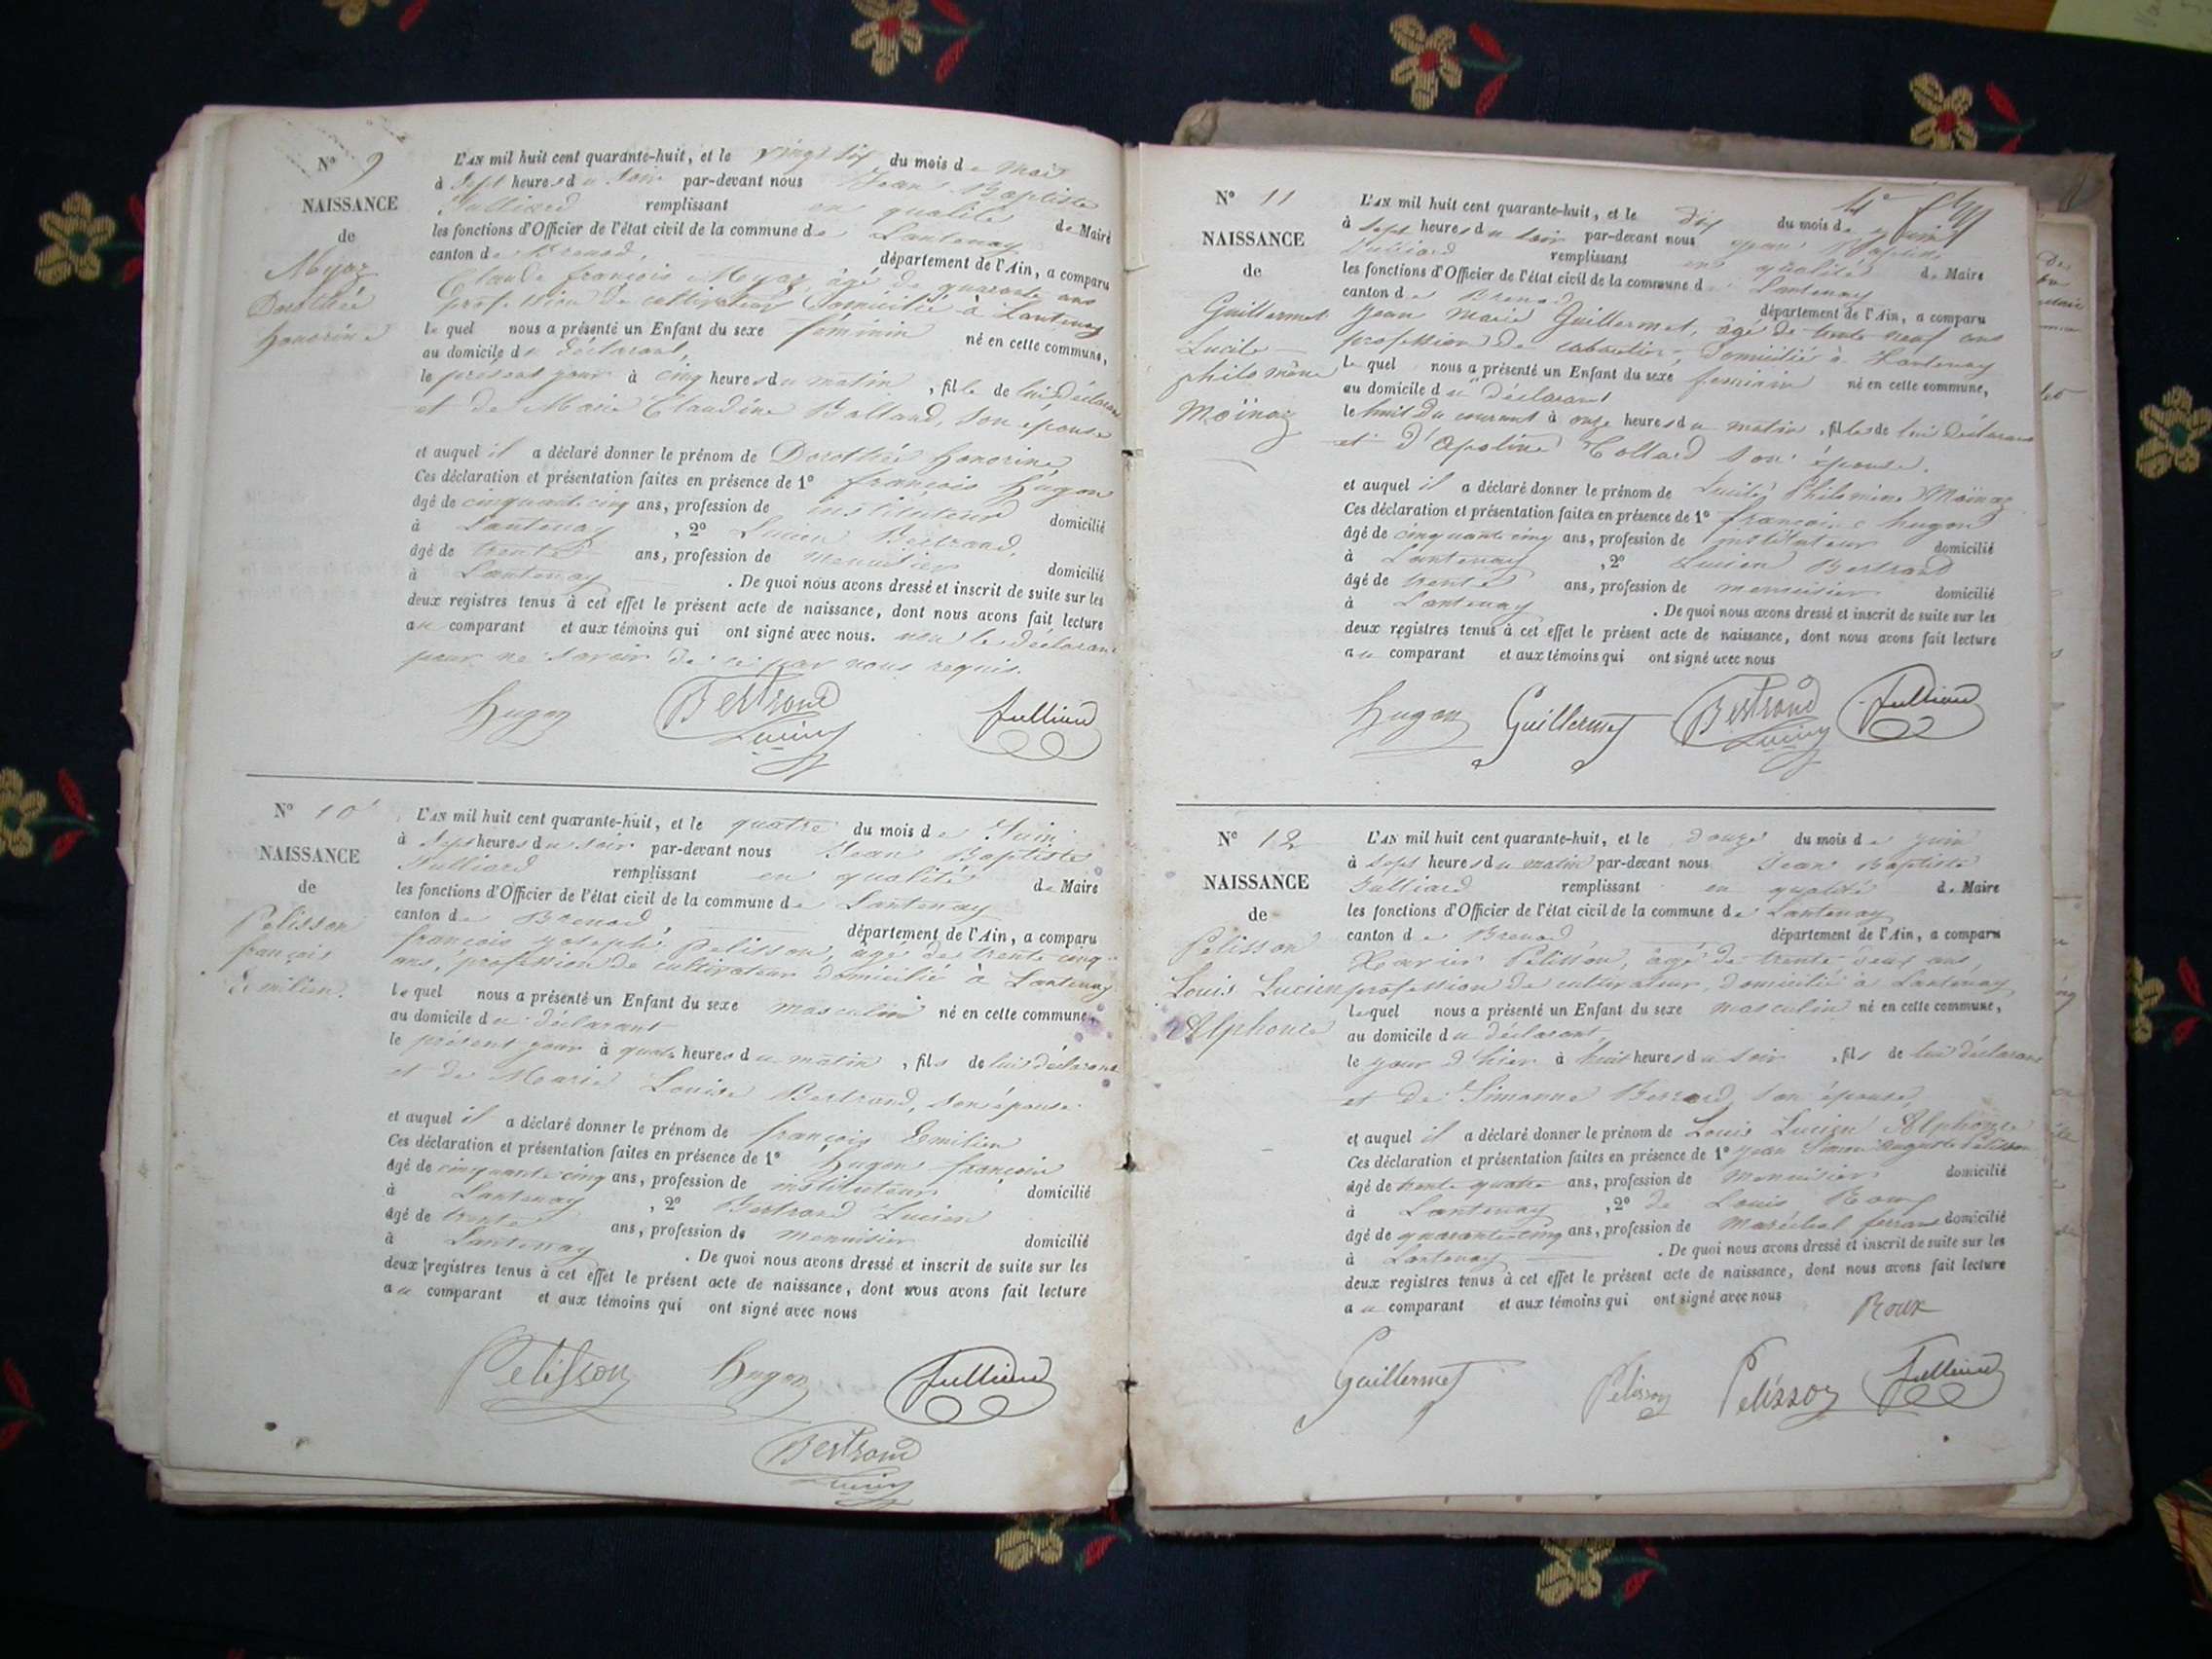 N° 9
NAISSANCE
de
Myaz
Dorothée
honorine
L'AN mil huit cent quarante-huit, et le vingt six du mois de Mai
à sept heures du soir par-devant nous Jean Baptiste
Julliard remplissant en qualité de Maire
les fonctions d'Officier de l'état civil de la commune de Lantenay
canton de Brenod, département de l'Ain, a comparu
Claude françois Myaz, âgé de quarante ans
profession de cultivateur domicilié à Lantenay
lequel nous a présenté un Enfant du sexe féminin né en cette commune,
au domicile du déclarant,
le présent jour à cinq heures du matin, fille de lui déclarant
et de Marie Claudine Balland, son épouse
et auquel il a déclaré donner le prénom de Dorothée honorine
Ces déclaration et présentation faites en présence de 1° françois hugon
âgé de cinquante cinq ans, profession de instituteur domicilié
à Lantenay, 2° Lucien Bertrand,
âgé de trente ans, profession de menuisier domicilié
à Lantenay. De quoi nous avons dressé et inscrit de suite sur les
deux registres tenus à cet effet le présent acte de naissance, dont nous avons fait lecture
au comparant et aux témoins qui ont signé avec nous. non le déclarant
pour ne savoir de ce par nous requis.
hugon Bertrand Lucien Julliard
N° 10
NAISSANCE
de
Pelisson
françois
Emilien.
L'AN mil huit cent quarante-huit, et le quatre du mois de Juin
à sept heures du soir par-devant nous Jean Baptiste
Julliard remplissant en qualité de Maire
les fonctions d'Officier de l'état civil de la commune de Lantenay
canton de Brenod, département de l'Ain, a comparu
françois joseph Pelisson, âgé de trente cinq
ans, profession de cultivateur domicilié à Lantenay
lequel nous a présenté un Enfant du sexe masculin né en cette commune,
au domicile du déclarant
le présent jour à quatre heures du matin, fils de lui déclarant
et de Marie Louise Bertrand, son épouse
et auquel il a déclaré donner le prénom de françois Emilien
Ces déclaration et présentation faites en présence de 1° hugon françois
âgé de cinquante cinq ans, profession de instituteur domicilié
à Lantenay, 2° Bertrand Lucien
âgé de trente ans, profession de menuisier domicilié
à Lantenay. De quoi nous avons dressé et inscrit de suite sur les
deux registres tenus à cet effet le présent acte de naissance, dont nous avons fait lecture
au comparant et aux témoins qui ont signé avec nous
Pelisson hugon Julliard
Bertrand Lucien
N° 11
NAISSANCE
de
Guillermet
Lucile
philomène
Moïnaz
L'AN mil huit cent quarante-huit, et le dix du mois de juin
à sept heures du soir par-devant nous jean Baptiste
Julliard remplissant en qualité de Maire
les fonctions d'Officier de l'état civil de la commune de Lantenay
canton de Brenod département de l'Ain, a comparu
jean Marie Guillermet, âgé de trente neuf ans
profession de cabaretier, domicilié à Lantenay
lequel nous a présenté un Enfant du sexe feminin né en cette commune,
au domicile du déclarant
le huit du courant à onze heures du matin, fille de lui déclarant
et d'Apoline Colland son épouse.
et auquel il a déclaré donner le prénom de Lucile Philomène Moïnaz
Ces déclaration et présentation faites en présence de 1° françois hugon
âgé de cinquante cinq ans, profession de instituteur domicilié
à Lantenay, 2° Lucien Bertrand
âgé de trente ans, profession de menuisier domicilié
à Lantenay. De quoi nous avons dressé et inscrit de suite sur les
deux registres tenus à cet effet le présent acte de naissance, dont nous avons fait lecture
au comparant et aux témoins qui ont signé avec nous
hugon Guillermet Bertrand Lucien Julliard
N° 12
NAISSANCE
de
Pelisson
Louis Lucien
Alphonse
L'AN mil huit cent quarante-huit, et le douze du mois de juin
à sept heures du matin par-devant nous Jean Baptiste
Julliard remplissant en qualité de Maire
les fonctions d'Officier de l'état civil de la commune de Lantenay
canton de Brenod département de l'Ain, a comparu
Xavier Pelisson, âgé de trente deux ans,
profession de cultivateur, domicilié à Lantenay
lequel nous a présenté un Enfant du sexe masculin né en cette commune,
au domicile du déclarant,
le jour d'hier à huit heures du soir, fils de lui déclarant
et de Simonne Berrod, son épouse,
et auquel il a déclaré donner le prénom de Louis Lucien Alphonse
Ces déclaration et présentation faites en présence de 1° jean Simon auguste Pelisson
âgé de trente quatre ans, profession de menuisier domicilié
à Lantenay, 2° de Louis Roux
âgé de quarante cinq ans, profession de maréchal ferrant domicilié
à Lantenay. De quoi nous avons dressé et inscrit de suite sur les
deux registres tenus à cet effet le présent acte de naissance, dont nous avons fait lecture
au comparant et aux témoins qui ont signé avec nous Roux
Guillermet Pelisson Pelisson Julliard